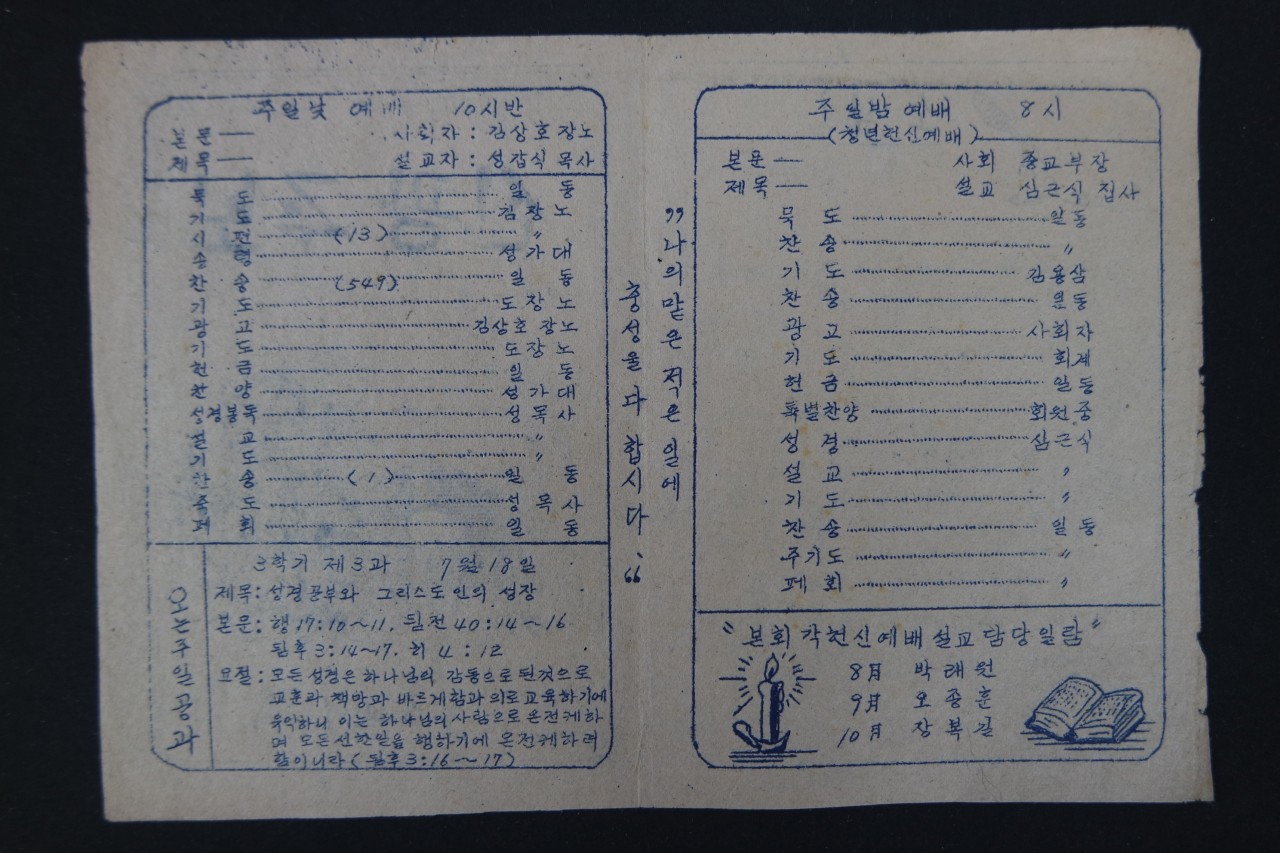 주일낮 예배 10시반
본문 ― 사회자 : 김상호 장노
제목 ― 설교자 : 성갑식 목사
묵도 일동
기도 김장노
시편 (13) 〃
송영 성가대
찬송 (549) 일동
기도 도장노
광고 김상호 장노
기도 도장노
헌금 일동
찬양 성가대
성경봉독 성목사
설교 〃
기도 〃
찬송 (1) 일동
축도 성목사
폐회 일동
오는주일공과
3학기 제3과 7월 18일
제목 : 성경공부와 그리스도인의 성장
본문 : 행 17:10~11. 딤전 40:14~16
딤후 3:14~17. 히 4:12
요절 : 모든 성경은 하나님의 감동으로 된것으로
교훈과 책망과 바르게함과 의로 교육하기에
유익하니 이는 하나님의 사람으로 온전케하
며 모든 선한일을 행하기에 온전케하려
함이니라 (딤후 3:16~17)
〃나의맡은 적은 일에
충성을 다 합시다.〃
주일밤 예배 8시
(청년헌신예배)
본문 ― 사회 종교부장
제목 ― 설교 심근식 집사
묵도 일동
찬송 〃
기도 김용삼
찬송 일동
광고 사회자
기도 회계
헌금 일동
특별찬양 회원중
성경 심근식
설교 〃
기도 〃
찬송 일동
주기도 〃
폐회 〃
〃본회 각헌신예배 설교담당일람〃
8月 박래원
9月 오종훈
10月 장복길